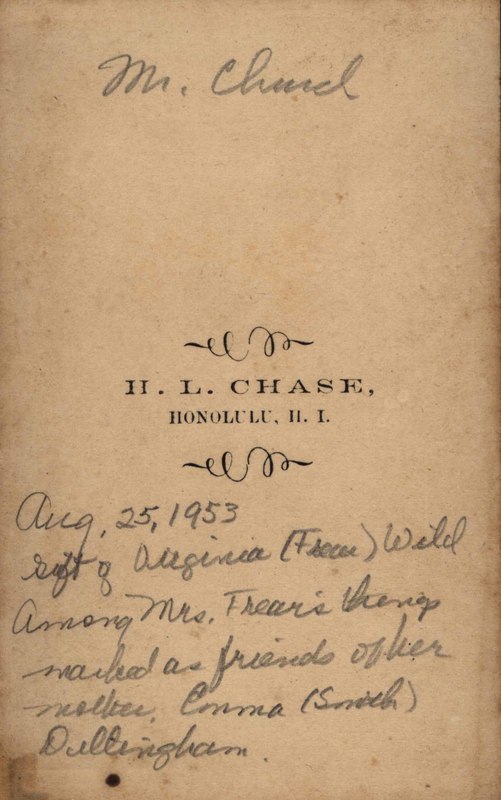 Mr. Church
H. L. CHASE,
HONOLULU, H. I.
Aug. 25, 1953
Gift of Virginia (Frear) Wild
Among Mrs. Frear's things
marked as friends of her
mother, Emma (Smith)
Dillingham.